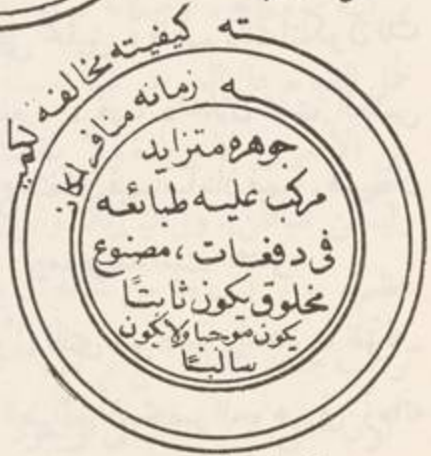 ته كيفيته مخالفه لكميـ
ـه زمانه مناف لمكانـ
جوهره متزايد
مركب عليه طبائعه
فى دفعات، مصنوع
مخلوق يكون ثابتًا
يكون موجبا ولا يكون
سالبـًا